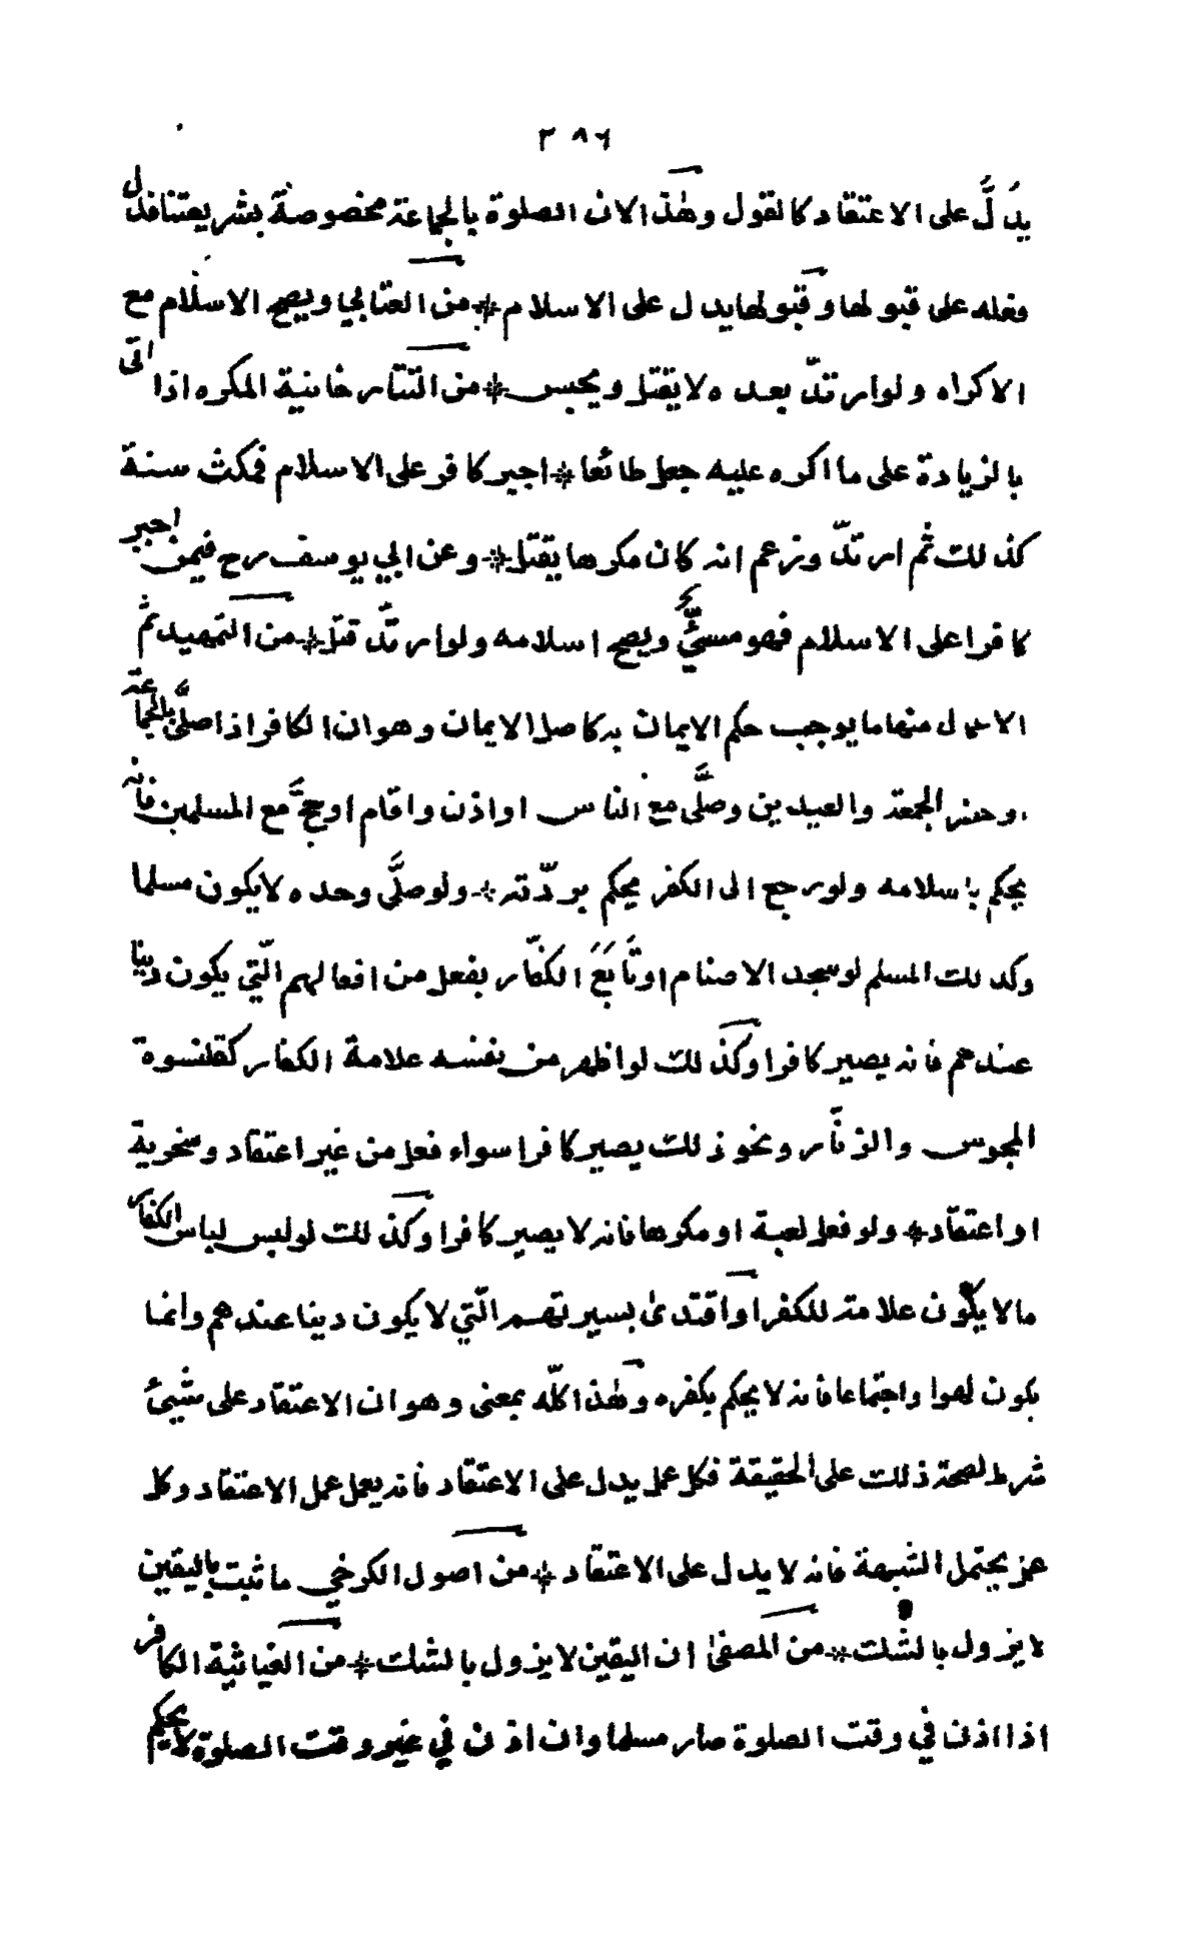 ٣٨٦
يدُلُّ على الاعتقاد كالقول وهٰذا لان الصلوة بالجماعة مخصوصة بشريعتنا فدل
فعله على قبولها وقبولها يدل على الاسلام * من العتابي ويصح الاسلام مع
الاكراه ولو ارتدّ بعده لا يقتل ويحبس * من التتار خانية المكره اذا اتى
بالزيادة على ما اكره عليه جعل طائعا * اجبر كافر على الاسلام فمكث سنة
كذلك ثم ارتدّ وزعم انه كان مكرها يقتل * وعن ابي يوسف رح فيمن اجبر
كافرا على الاسلام فهو مسيئٌ ويصح اسلامه ولو ارتدّ قتل * من التمهيد ثم
الاعمال منها ما يوجب حكم الايمان به كاصل الايمان وهو ان الكافر اذا صلَّى بالجماعة
او حضر الجمعة والعيدين وصلَّى مع الناس او اذن واقام او حجَّ مع المسلمين فانه
يحكم باسلامه ولو رجع الى الكفر يحكم بردّته * ولو صلَّى وحده لا يكون مسلما
وكذلك المسلم لو سجد الاصنام او تَابَعَ الكفّار بفعل من افعالهم الّتي يكون دينا
عندهم فانه يصير كافرا وكذلك لو اظهر من نفسه علامة الكفار كقلنسوة
المجوس والزنّار ونحو ذلك يصير كافرا سواء فعل من غير اعتقاد وسخرية
او اعتقاد * ولو فعل لعبة او مكرها فانه لا يصير كافرا وكذلك لو لبس لباس الكفار
ما لا يكون علامة للكفر او اقتدىٰ بسيرتهم الّتي لا يكون دينا عندهم وانما
يكون لهوا واجتماعا فانه لا يحكم بكفره وهٰذا كلّه بمعنى وهو ان الاعتقاد على شيئ
شرط لصحة ذلك على الحقيقة فكل عمل يدل على الاعتقاد فانه يعمل عمل الاعتقاد وكل
يحتمل الشبهة فانه لا يدل على الاعتقاد * من اصول الكرخي ما ثبت باليقين
لا يزول بالشك * من المصفىٰ ان اليقين لا يزول بالشك * من الغياثية الكافر
اذا اذن في وقت الصلوة صار مسلما وان اذن في غير وقت الصلوة لا يحكم